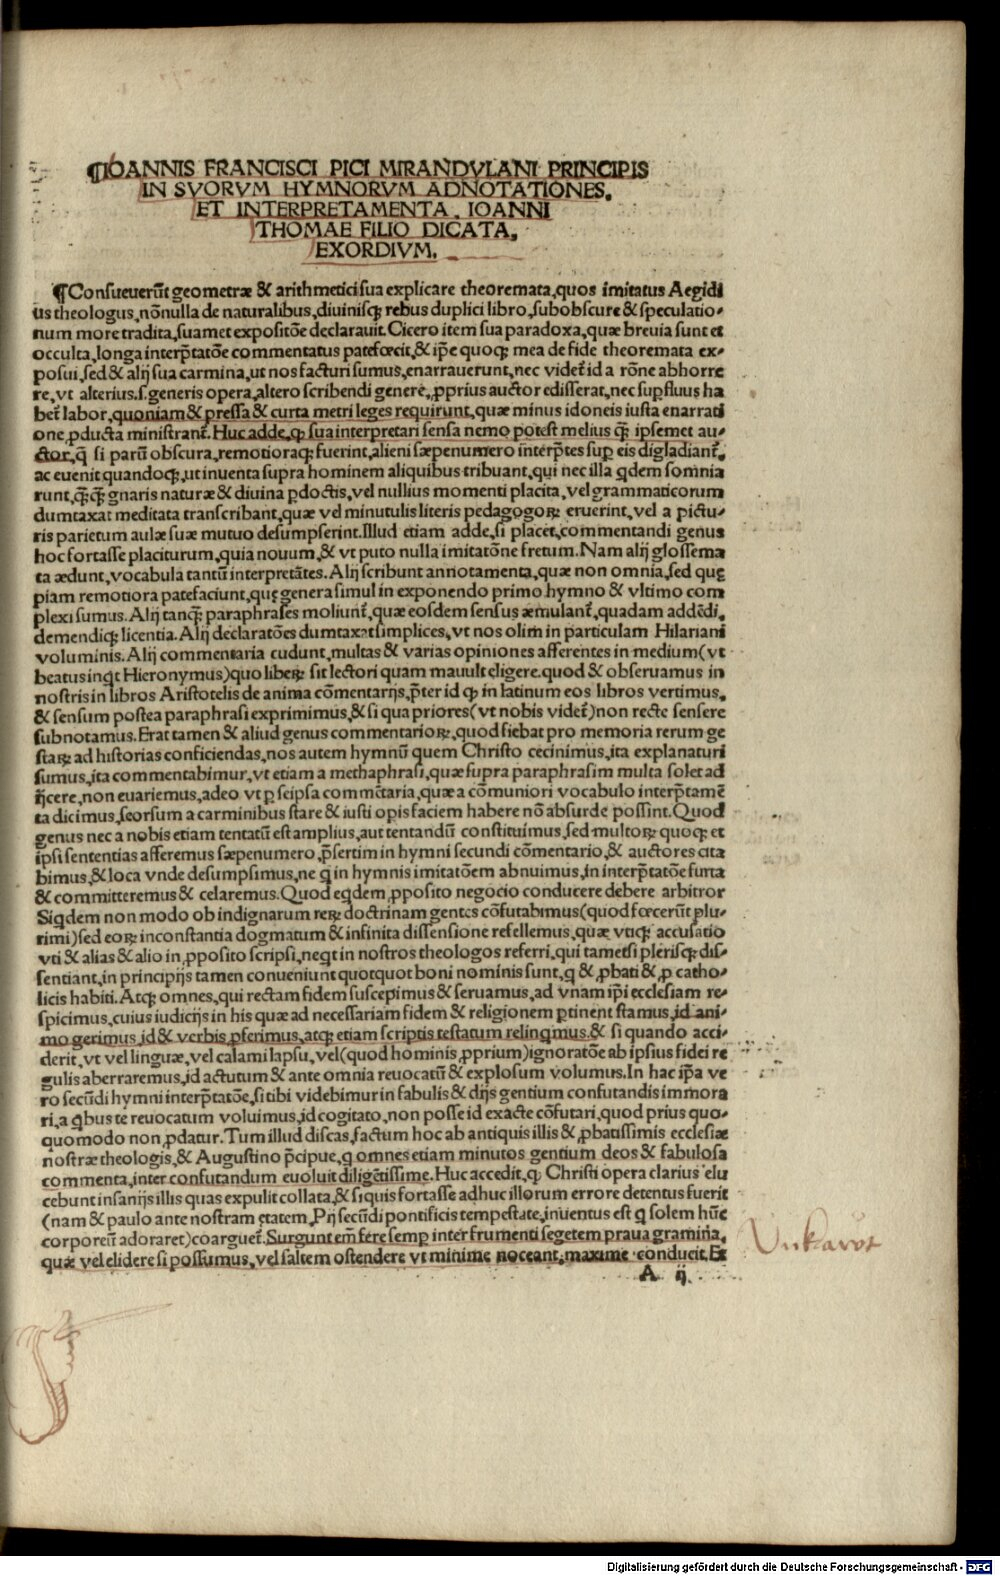 ¶IOANNIS FRANCISCI PICI MIRANDVLANI PRINCIPIS
IN SVORVM HYMNORVM ADNOTATIONES,
ET INTERPRETAMENTA, IOANNI
THOMAE FILIO DICATA,
EXORDIVM.
¶Consueuerũt geometræ & arithmetici sua explicare theoremata, quos imitatus Aegidi
us theologus, nõnulla de naturalibus, diuinisqꝫ rebus duplici libro, subobscure & speculatio-
num more tradita, suamet expositõe declarauit. Cicero item sua paradoxa, quæ breuia sunt et
occulta, longa interp̃tatõe commentatus patefœcit, & ip̃e quoqꝫ mea de fide theoremata ex-
posui, sed & alij sua carmina, ut nos facturi sumus, enarrauerunt, nec videt̃ id a rõne abhorre
re, vt alterius .s. generis opera, altero scribendi genere, ꝓprius auctor edisserat, nec supfluus ha
bet̃ labor, quoniam & pressa & curta metri leges requirunt, quæ minus idoneis iusta enarrati
one, ꝓducta ministrant̃. Huc adde, ꝙ sua interpretari sensa nemo potest melius q̃ꝫ ipsemet au-
ctor, q̃ si parũ obscura, remotioraqꝫ fuerint, alieni sæpenumero interp̃tes suꝑ eis digladiant̃,
ac euenit quandoqꝫ, ut inuenta supra hominem aliquibus tribuant, qui nec illa q̃dem somnia
runt, q̃ꝫq̃ꝫ gnaris naturæ & diuina ꝑdoctis, vel nullius momenti placita, vel grammaticorum
dumtaxat meditata transcribant, quæ vel minutulis literis pedagogoꝝ eruerint, vel a pictu-
ris parietum aulæ suæ mutuo desumpserint. Illud etiam adde, si placet, commentandi genus
hoc fortasse placiturum, quia nouum, & vt puto nulla imitatõne fretum. Nam alij glossema
ta ædunt, vocabula tantũ interpretãtes. Alij scribunt annotamenta, quæ non omnia, sed quę
piam remotiora patefaciunt, quę genera simul in exponendo primo hymno & vltimo com
plexi sumus. Alij tanqꝫ paraphrases moliunt̃, quæ eosdem sensus æmulant̃, quadam addẽdi,
demendiqꝫ licentia. Alij declaratões dumtaxat simplices, vt nos olim in particulam Hilariani
voluminis. Alij commentaria cudunt, multas & varias opiniones afferentes in medium (vt
beatus inq̃t Hieronymus) quo liberꝫ sit lectori quam mauult eligere. quod & obseruamus in
nostris in libros Aristotelis de anima cõmentarijs, p̃ter id ꝙ in latinum eos libros vertimus,
& sensum postea paraphrasi exprimimus, & si qua priores (vt nobis videt̃) non recte sensere
subnotamus. Erat tamen & aliud genus commentarioꝝ, quod fiebat pro memoria rerum ge
staꝝ ad historias conficiendas, nos autem hymnũ quem Christo cecinimus, ita explanaturi
sumus, ita commentabimur, vt etiam a methaphrasi, quæ supra paraphrasim multa solet ad
ijcere, non euariemus, adeo vt ꝑ seipsa commẽtaria, quæ a cõmuniori vocabulo interp̃tamẽ
ta dicimus, seorsum a carminibus stare & iusti opis faciem habere nõ absurde possint. Quod
genus nec a nobis etiam tentatũ est amplius, aut tentandũ constituimus, sed multoꝝ quoqꝫ et
ipsi sententias afferemus sæpenumero, p̃sertim in hymni secundi cõmentario, & auctores cita
bimus, & loca vnde desumpsimus, ne q̃ in hymnis imitatõem abnuimus, in interp̃tatõe furta
& committeremus & celaremus. Quod eq̃dem, ꝓposito negocio conducere debere arbitror
Siq̃dem non modo ob indignarum reꝝ doctrinam gentes cõfutabimus (quod fœcerũt plu-
rimi) sed eoꝝ inconstantia dogmatum & infinita dissensione refellemus, quæ vtiqꝫ accusatio
vti & alias & alio in ꝓposito scripsi, neq̃t in nostros theologos referri, qui tametsi plerisqꝫ dis-
sentiant, in principijs tamen conueniunt quotquot boni nominis sunt, q & ꝓbati & ꝓ catho-
licis habiti. Atqꝫ omnes, qui rectam fidem suscepimus & seruamus, ad vnam ip̃i ecclesiam re-
spicimus, cuius iudicijs in his quæ ad necessariam fidem & religionem ꝑtinent stamus, id ani-
mo gerimus, id & verbis ꝓferimus, atqꝫ etiam scriptis testatum relinq̃mus. & si quando acci-
derit, vt vel linguæ, vel calami lapsu, vel (quod hominis ꝓprium) ignoratõe ab ipsius fidei re
gulis aberraremus, id actutum & ante omnia reuocatũ & explosum volumus. In hac ip̃a ve
ro secũdi hymni interp̃tatõe, si tibi videbimur in fabulis & dijs gentium confutandis immora
ri, a q̃bus te reuocatum voluimus, id cogitato, non posse id exacte cõfutari, quod prius quo-
quomodo non ꝓdatur. Tum illud discas, factum hoc ab antiquis illis & ꝓbatissimis ecclesiæ
nostræ theologis, & Augustino p̃cipue, q omnes etiam minutos gentium deos & fabulosa
commenta, inter confutandum euoluit diligẽtissime. Huc accedit, ꝙ Christi opera clarius elu
cebunt insanijs illis quas expulit collata, & si quis fortasse adhuc illorum errore detentus fuerit
(nam & paulo ante nostram ętatem, Pij secũdi pontificis tempestate, inuentus est q solem hũc
corporeũ adoraret) coarguet̃. Surgunt em̃ fere semꝑ inter frumenti segetem praua gramina,
quæ vel elidere si possumus, vel saltem ostendere vt minime noceant, maxime conducit. Et
A ij
Vnkravt
Digitalisierung gefördert durch die Deutsche Forschungsgemeinschaft - DFG